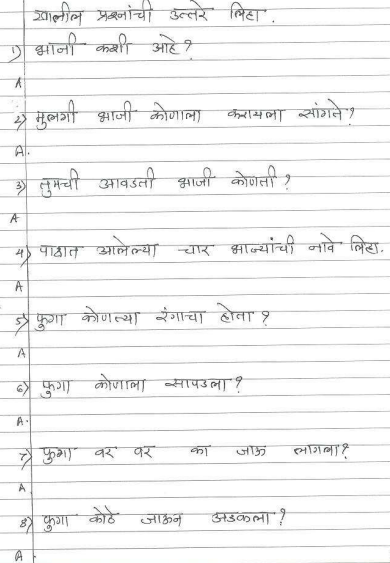 खालील प्रश्नांची उत्तरे लिहा.
1) भाजी कशी आहे?
A
2) मुलगी भाजी कोणाला करायला सांगते?
A.
3) तुमची आवडती भाजी कोणती?
A
4) पाठात आलेल्या चार भाज्यांची नावे लिहा.
A
5) फुगा कोणत्या रंगाचा होता?
A
6) फुगा कोणाला सापडला?
A.
7) फुगा वर वर का जाऊ लागला?
A
8) फुगा कोठे जाऊन अडकला?
A.